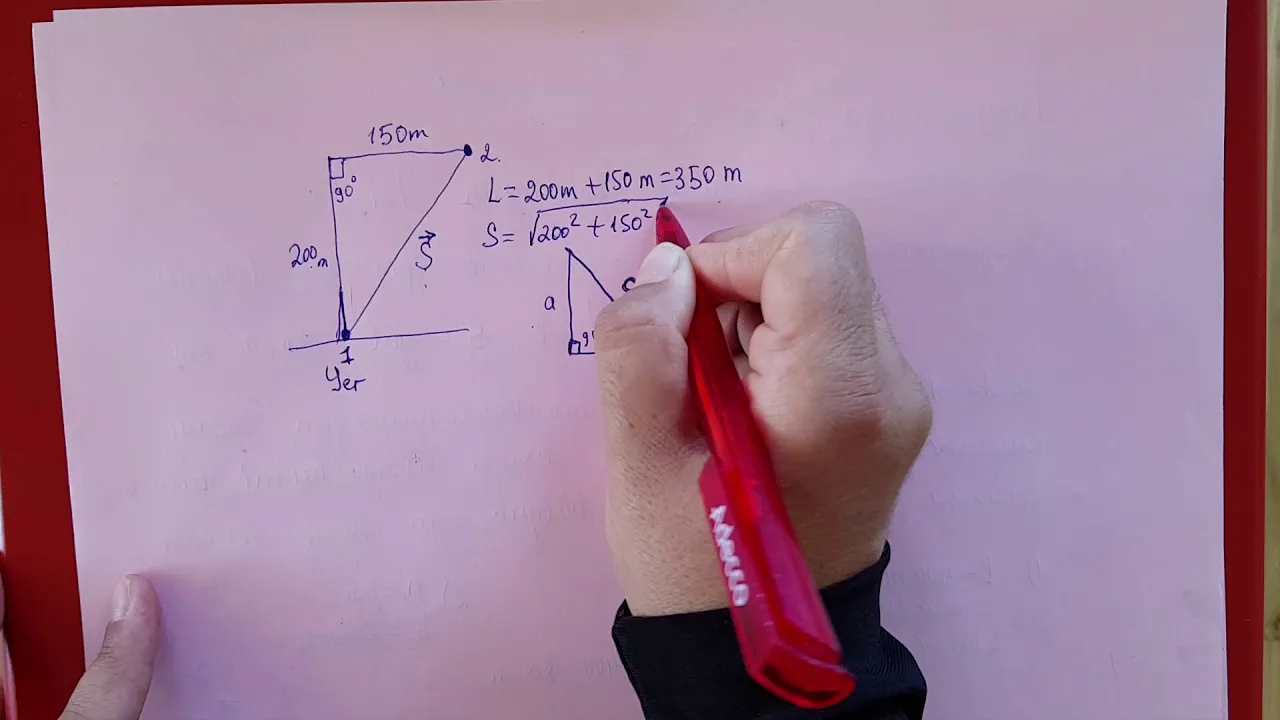 150m
2.
90°
200m
S⃗
1
Yer
L = 200m + 150 m = 350 m
S = √200² + 150²
a